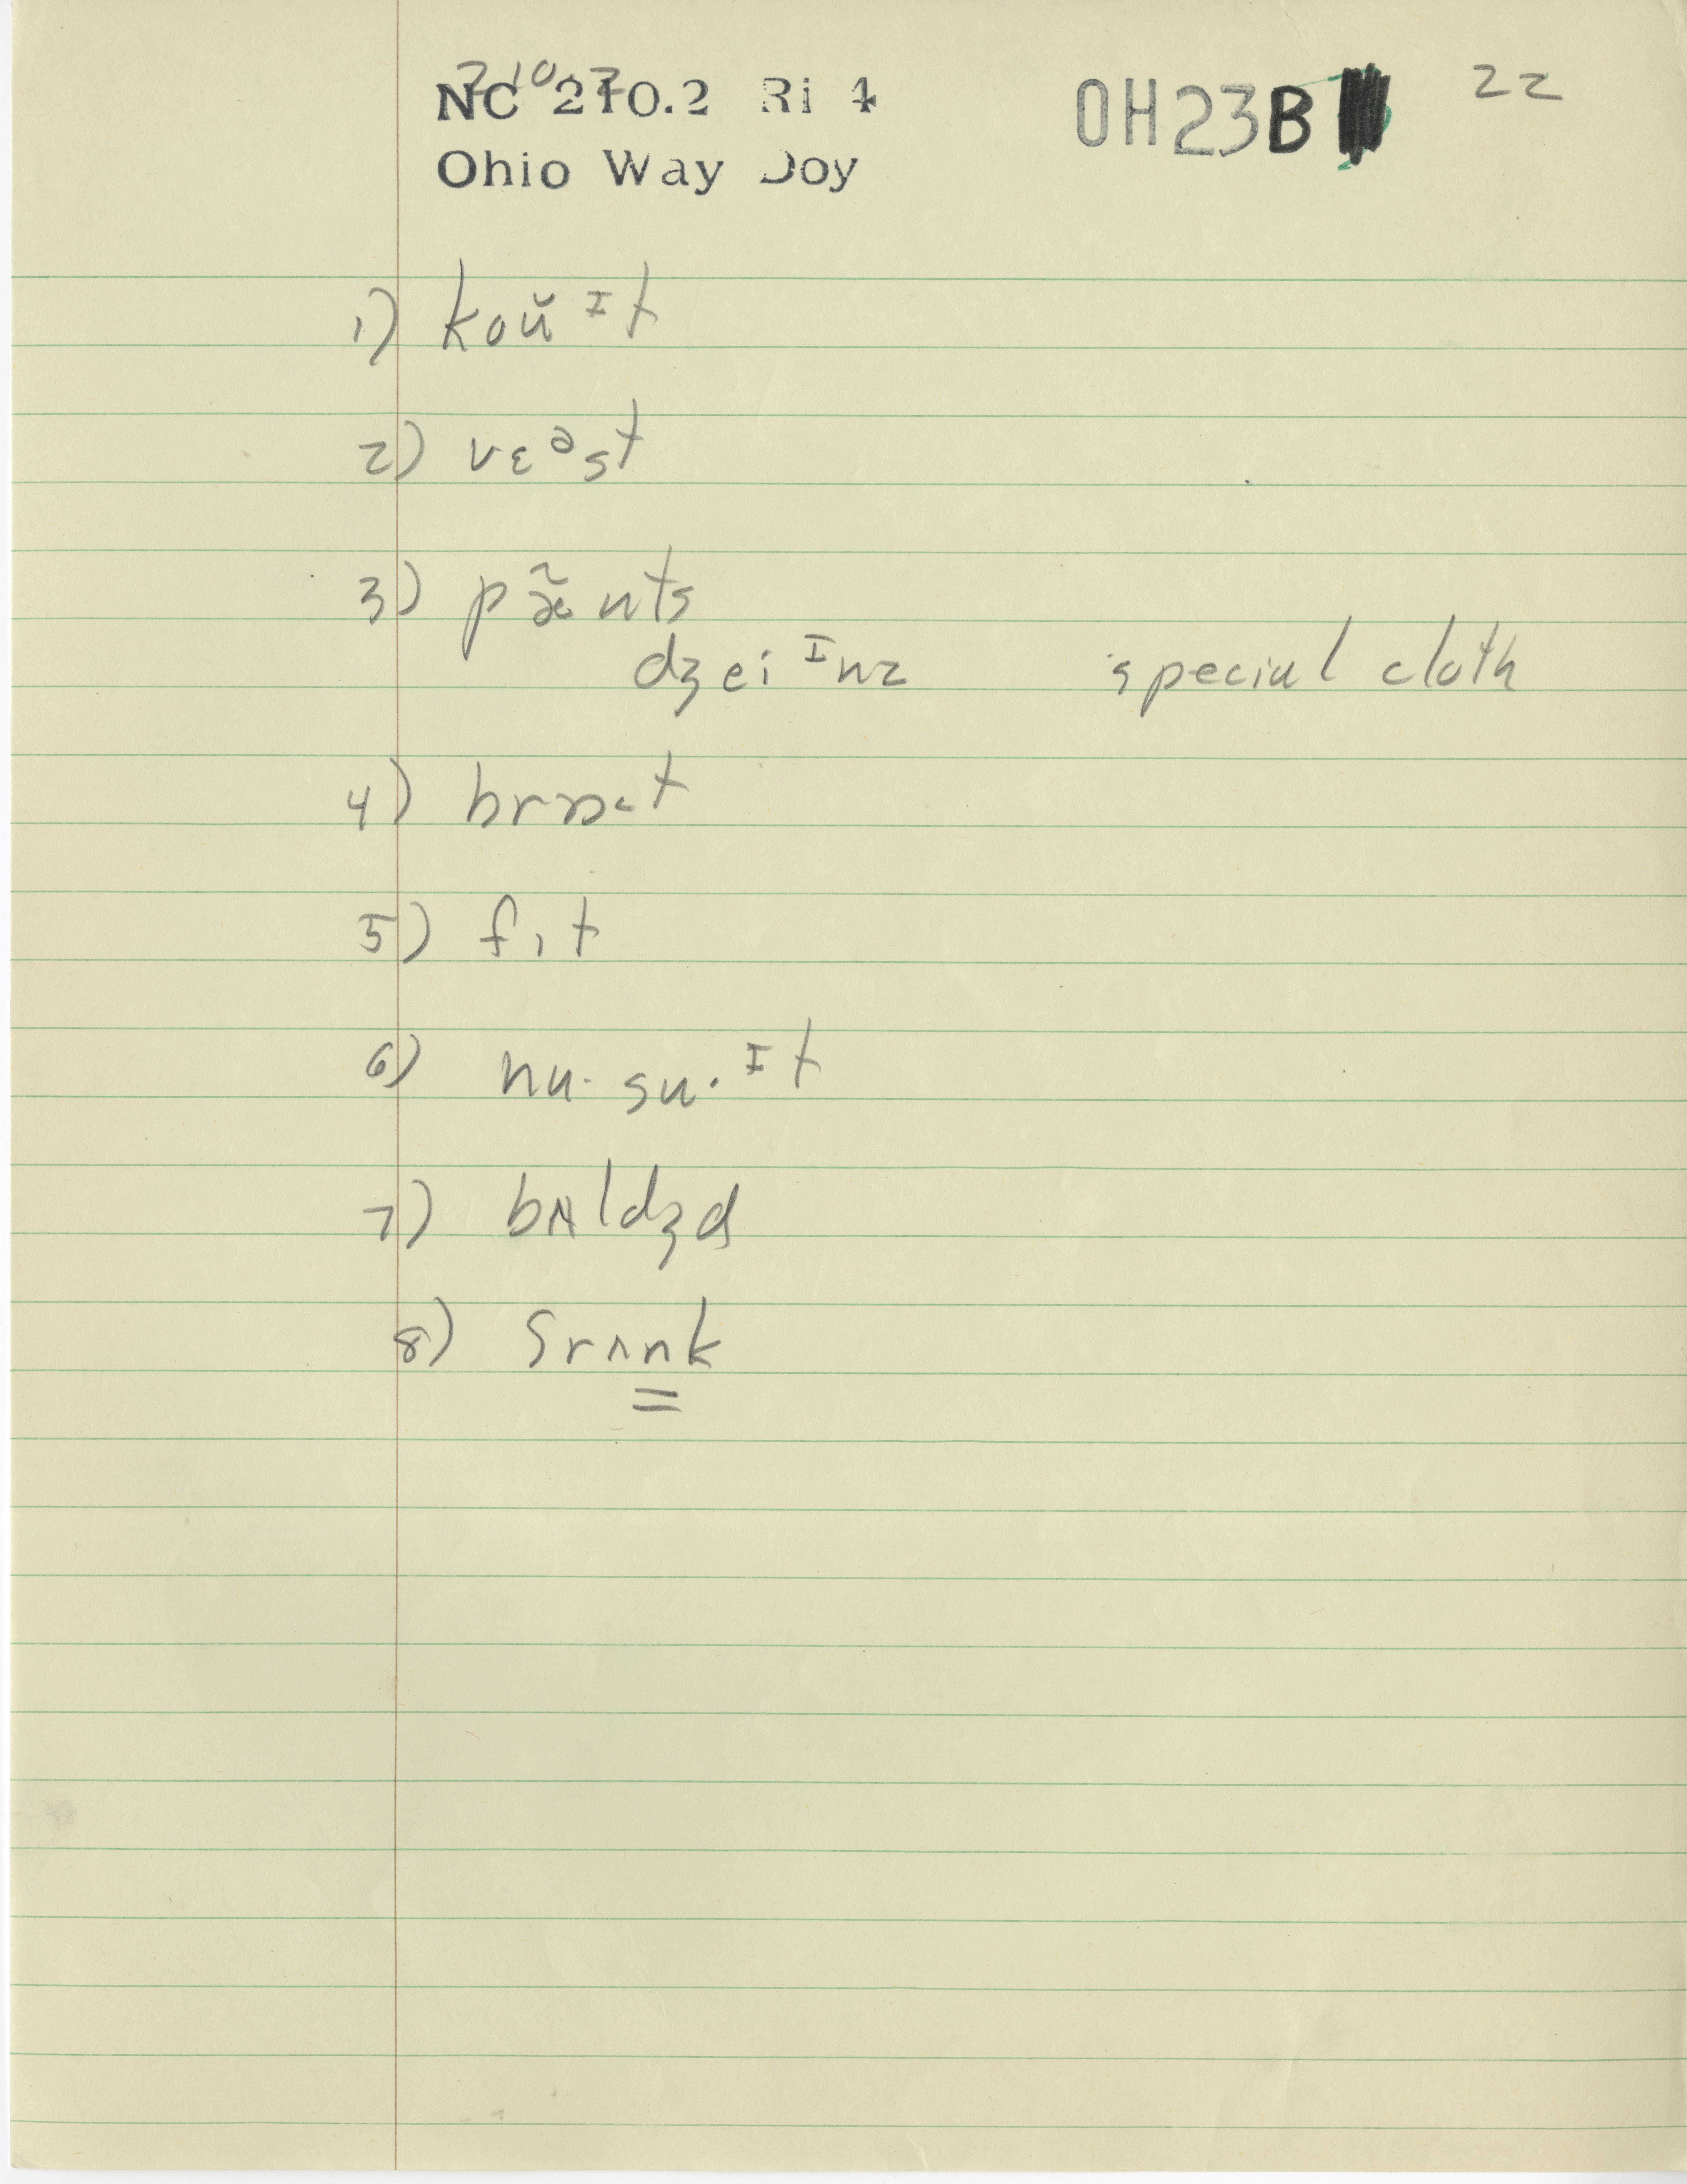 NC 210.2 Ri 4
Ohio Way Joy
OH23B 22
1) koŭ ᴵt
2) vɛᵊst
3) pæ̃nts
dʒei ᴵnz special cloth
4) brɒ<t
5) fɪt
6) nu· su· ᴵt
7) bʌldʒd
8) srʌnk